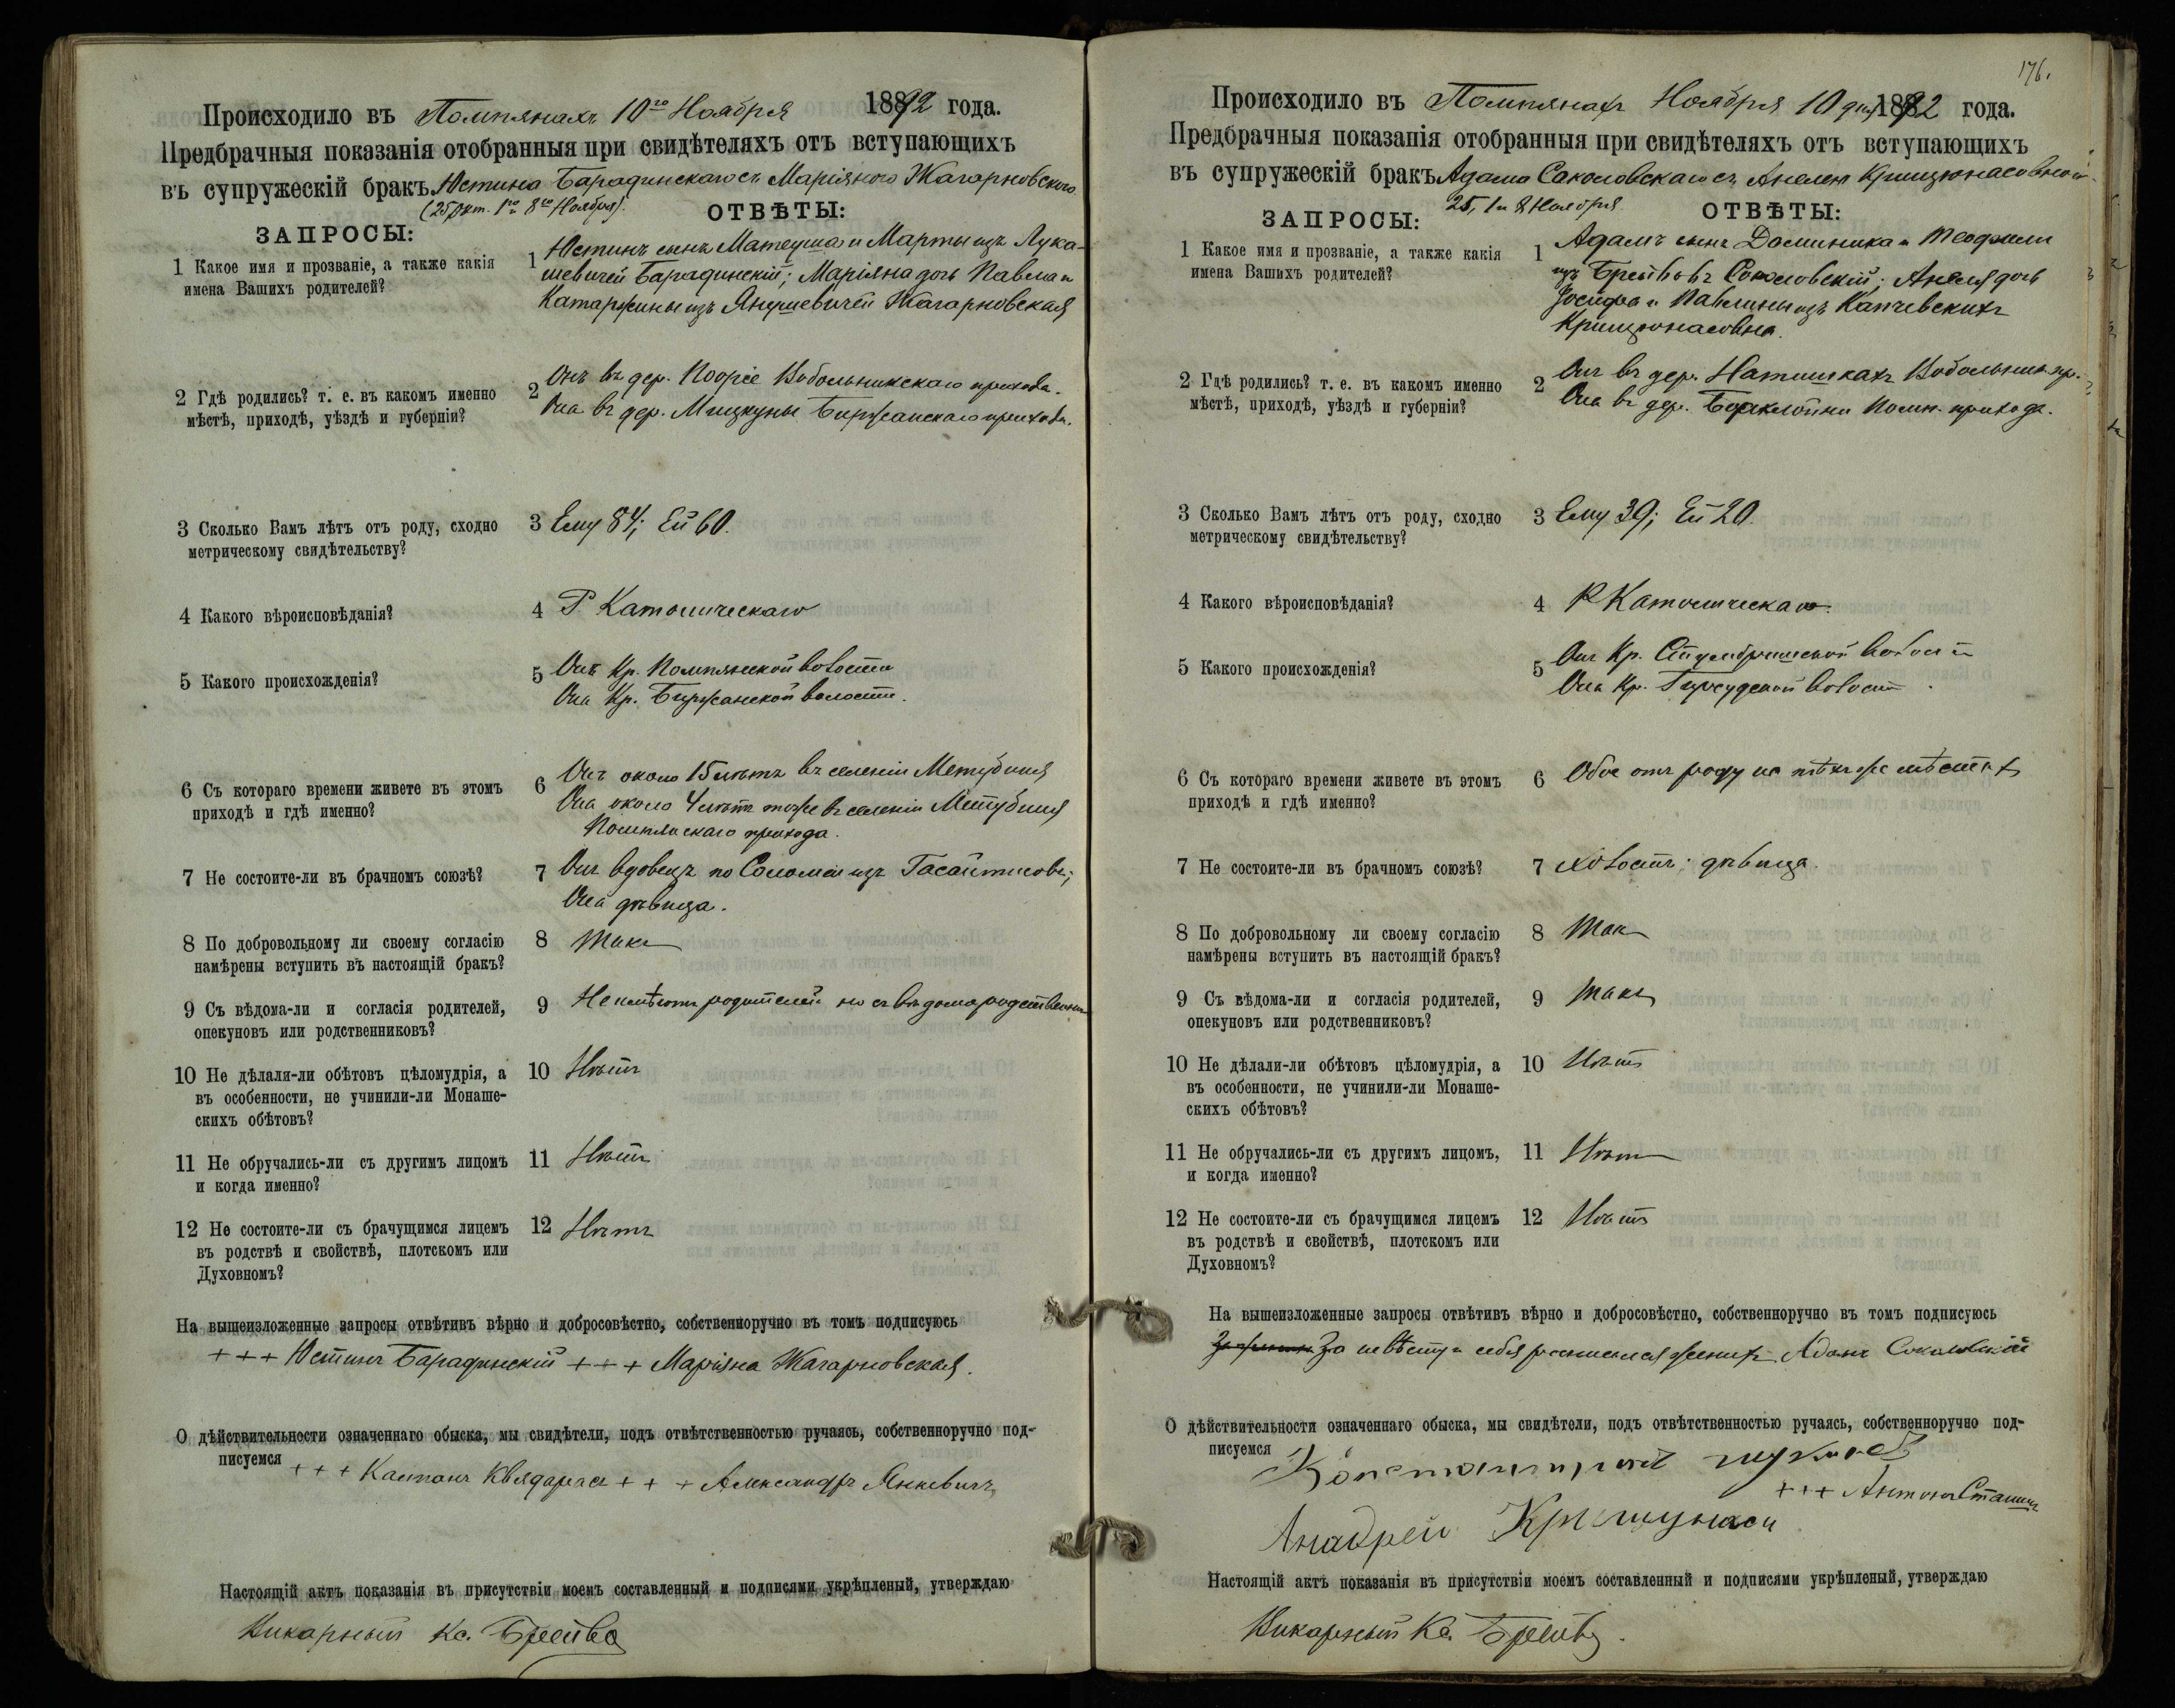 Происходило въ Помпянахъ 10го Ноября 1892 года.
Предбрачныя показанія отобранныя при свидѣтеляхъ отъ вступающихъ
въ супружескій бракъ Юстина Барадинскаго съ Маріяною Жагарновского
(25 окт. 1го и 8го Ноября).
ЗАПРОСЫ:
ОТВѢТЫ:
1 Какое имя и прозваніе, а также какія
имена Вашихъ родителей?
1 Юстинъ сынъ Матеуша и Марты изъ Лука-
шевичей Барадинскій; Маріяна дочь Павла и
Катаржины изъ Янушевичей Жагарновская
2 Гдѣ родились? т. е. въ какомъ именно
мѣстѣ, приходѣ, уѣздѣ и губерніи?
2 Онъ въ дер. Вобольникскаго прихода.
Она въ дер. Биржанскаго прихода.
3 Сколько Вамъ лѣтъ отъ роду, сходно
метрическому свидѣтельству?
3 Ему 84; Ей 60.
4 Какого вѣроисповѣданія?
4 Р Католическаго
5 Какого происхожденія?
5 Онъ Кр. Помпянской волости
Она Кр. Биржанской волости.
6 Съ котораго времени живете въ этомъ
приходѣ и гдѣ именно?
6 Онъ около 15 лѣтъ въ селеніи
Она около 4 лѣтъ тоже въ селеніи
Помпянскаго прихода.
7 Не состоите-ли въ брачномъ союзѣ?
7 Онъ вдовецъ по Соломеи изъ
Она дѣвица.
8 По добровольному ли своему согласію
намѣрены вступить въ настоящій бракъ?
8 Такъ
9 Съ вѣдома-ли и согласія родителей,
опекуновъ или родственниковъ?
9 Не имѣютъ родителей но съ вѣдома
10 Не дѣлали-ли обѣтовъ цѣломудрія, а
въ особенности, не учинили-ли Монаше-
скихъ обѣтовъ?
10 Нѣтъ
11 Не обручались-ли съ другимъ лицомъ
и когда именно?
11 Нѣтъ
12 Не состоите-ли съ брачущимся лицемъ
въ родствѣ и свойствѣ, плотскомъ или
Духовномъ?
12 Нѣтъ
На вышеизложенные запросы отвѣтивъ вѣрно и добросовѣстно, собственноручно въ томъ подписуюсь
+++ Юстинъ Барадинскій +++ Маріяна Жагарновская.
О дѣйствительности означеннаго обыска, мы свидѣтели, подъ отвѣтственностью ручаясь, собственноручно под-
писуемся
+++ Каетанъ +++ Александръ Янкевичъ
Настоящій актъ показанія въ присутствіи моемъ составленный и подписями укрѣпленый, утверждаю
Викарный Кс. Брейва
176.
Происходило въ Помпянахъ Ноября 10 дня 1892 года.
Предбрачныя показанія отобранныя при свидѣтеляхъ отъ вступающихъ
въ супружескій бракъ Адама Саколовскаго съ Анелею
25, 1 и 8 Ноября
ЗАПРОСЫ:
ОТВѢТЫ:
1 Какое имя и прозваніе, а также какія
имена Вашихъ родителей?
1 Адамъ сынъ Доминика и Теофили
изъ Соколовскій; Анеля дочь
Іосифа и Павлины изъ
2 Гдѣ родились? т. е. въ какомъ именно
мѣстѣ, приходѣ, уѣздѣ и губерніи?
2 Онъ въ дер. Вобольник. пр.
Она въ дер. Помп. прихода.
3 Сколько Вамъ лѣтъ отъ роду, сходно
метрическому свидѣтельству?
3 Ему 39; Ей 20.
4 Какого вѣроисповѣданія?
4 Р Католическаго.
5 Какого происхожденія?
5 Онъ Кр. волости
Она Кр. волости.
6 Съ котораго времени живете въ этомъ
приходѣ и гдѣ именно?
6 Обое отъ роду на тѣхъ же мѣстахъ
7 Не состоите-ли въ брачномъ союзѣ?
7 Холостъ; дѣвица.
8 По добровольному ли своему согласію
намѣрены вступить въ настоящій бракъ?
8 Такъ
9 Съ вѣдома-ли и согласія родителей,
опекуновъ или родственниковъ?
9 Такъ
10 Не дѣлали-ли обѣтовъ цѣломудрія, а
въ особенности, не учинили-ли Монаше-
скихъ обѣтовъ?
10 Нѣтъ
11 Не обручались-ли съ другимъ лицомъ,
и когда именно?
11 Нѣтъ
12 Не состоите-ли съ брачущимся лицемъ
въ родствѣ и свойствѣ, плотскомъ или
Духовномъ?
12 Нѣтъ
На вышеизложенные запросы отвѣтивъ вѣрно и добросовѣстно, собственноручно въ томъ подписуюсь
За невѣсту и себя женихъ Адамъ Соколовскій
О дѣйствительности означеннаго обыска, мы свидѣтели, подъ отвѣтственностью ручаясь, собственноручно под-
писуемся
+++ Антонъ
Анадрей
Настоящій актъ показанія въ присутствіи моемъ составленный и подписями укрѣпленый, утверждаю
Викарный Кс. Брейва.